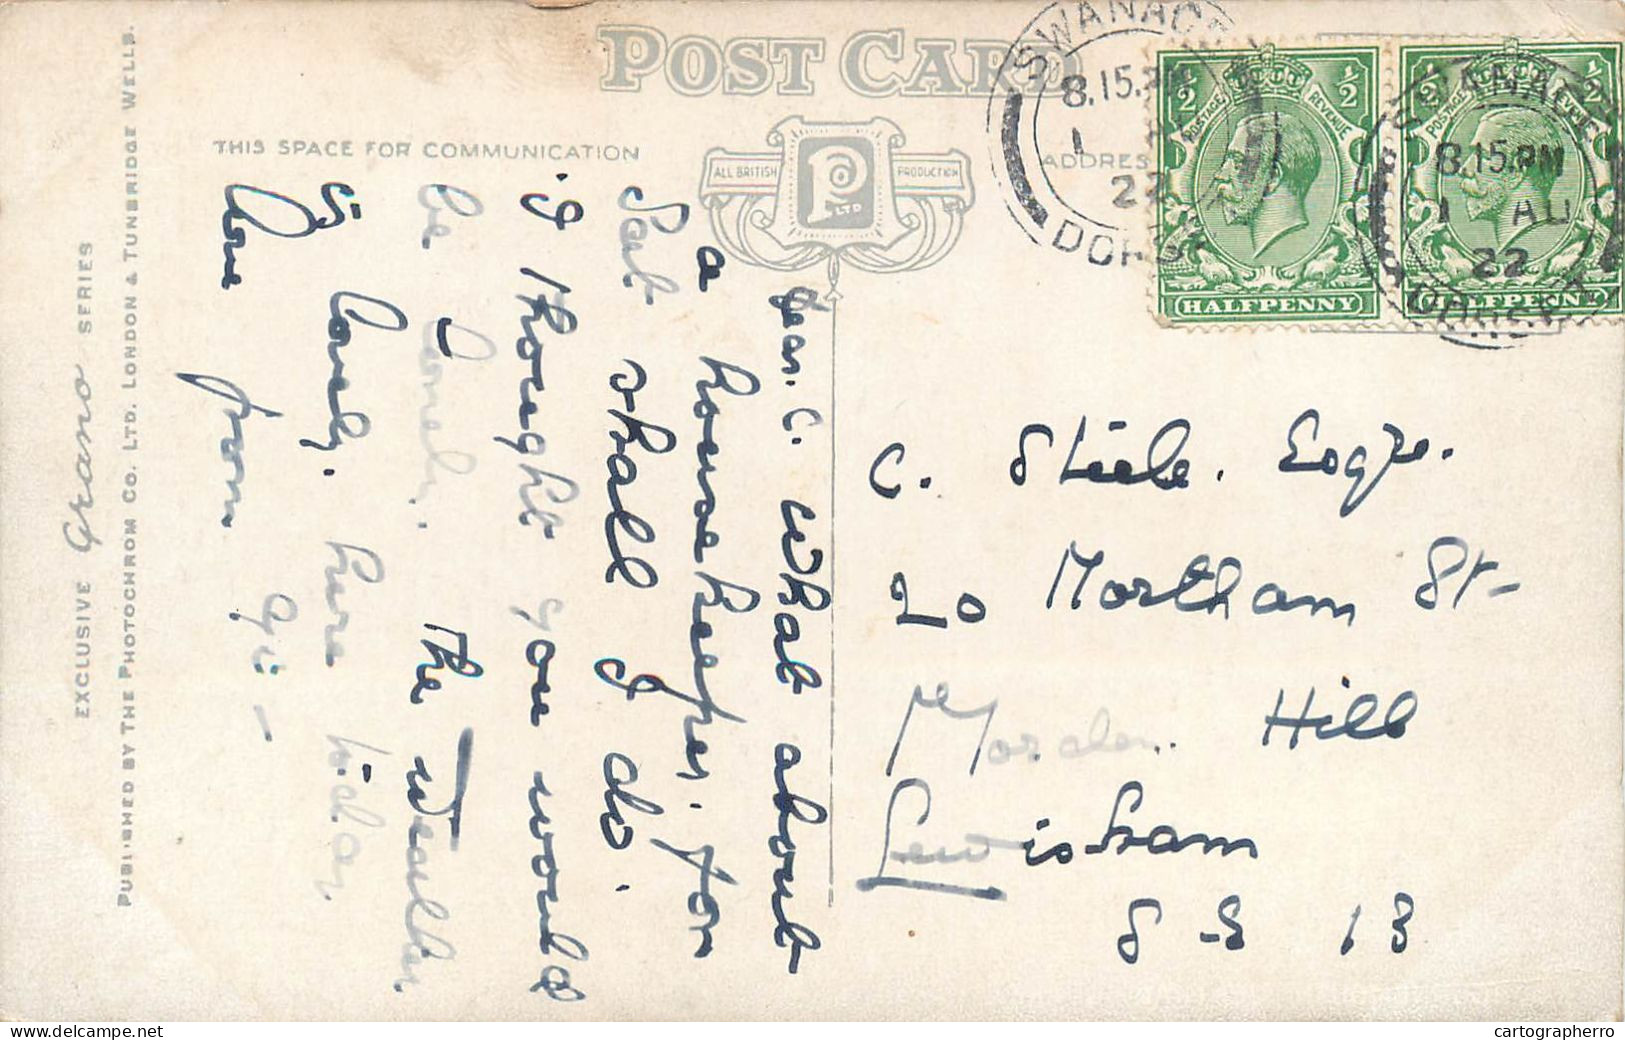 POST CARD
THIS SPACE FOR COMMUNICATION
ADDRES
ALL BRITISH
PRODUCTION
P
LTD
SWANAGE
8.15.PM
1
22
DORS
SWANAGE
8.15.PM
1 AU
22
DORSET
1/2
1/2
POSTAGE
REVENUE
HALFPENNY
1/2
1/2
POSTAGE
REVENUE
HALFPENNY
Dear. C. What about
a housekeeper. for
Sat shall I do.
I thought you would
be lonely. The weather
is lovely. here today.
Love from
C. Steele. Esqre.
70 Mortham St-
Morden. Hill
Lewisham
S E 13
EXCLUSIVE Grano SERIES
PUBLISHED BY THE PHOTOCHROM CO. LTD. LONDON & TUNBRIDGE WELLS.
delcampe.net
cartographerro